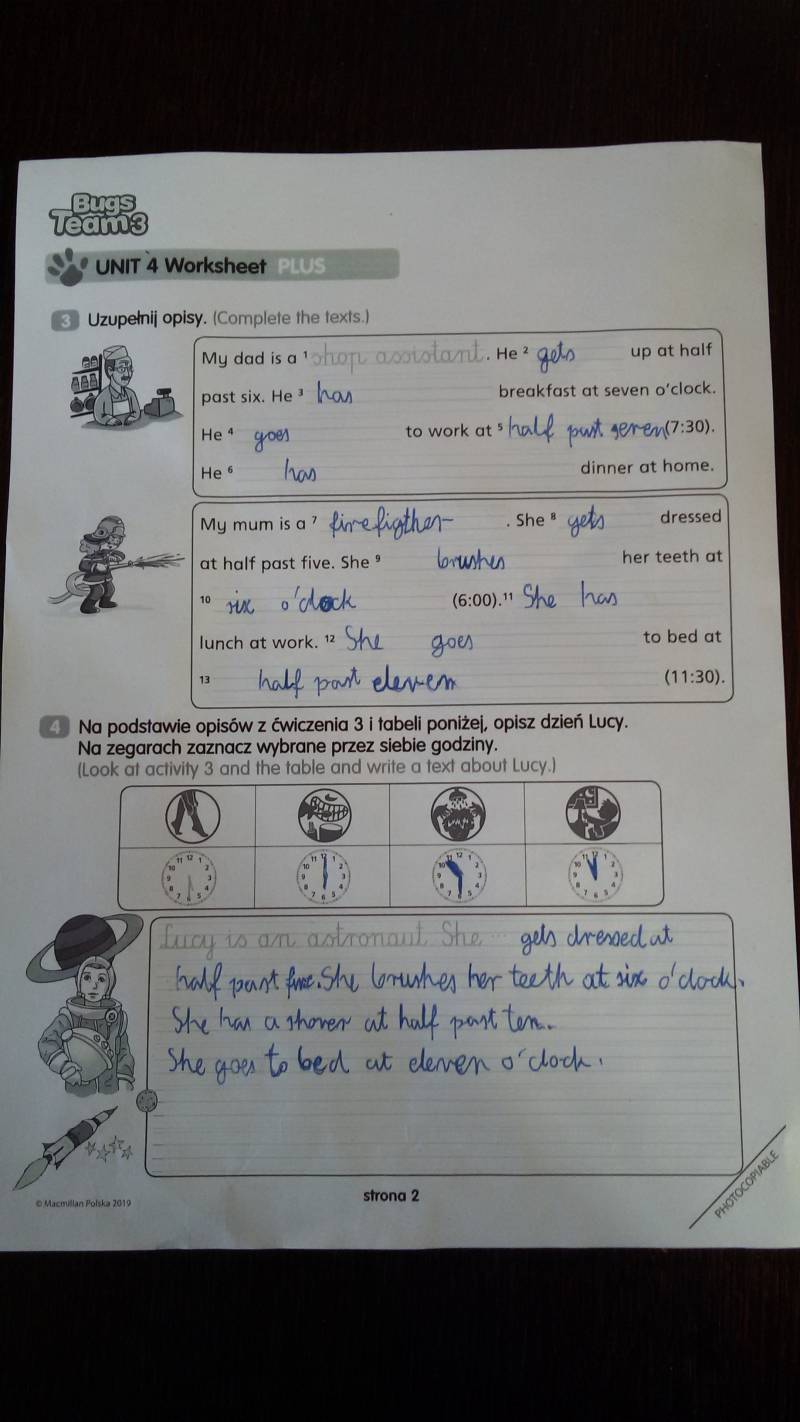 Bugs
Team 3
UNIT 4 Worksheet PLUS
3 Uzupełnij opisy. (Complete the texts.)
My dad is a ¹ shop assistant. He ² gets up at half
past six. He ³ has breakfast at seven o'clock.
He ⁴ goes to work at ⁵ half past seven (7:30).
He ⁶ has dinner at home.
My mum is a ⁷ firefigther. She ⁸ gets dressed
at half past five. She ⁹ brushes her teeth at
¹⁰ six o'clock (6:00). ¹¹ She has
lunch at work. ¹² She goes to bed at
¹³ half past eleven (11:30).
4 Na podstawie opisów z ćwiczenia 3 i tabeli poniżej, opisz dzień Lucy.
Na zegarach zaznacz wybrane przez siebie godziny.
(Look at activity 3 and the table and write a text about Lucy.)
Lucy is an astronaut. She ... gets dressed at
half past five. She brushes her teeth at six o'clock.
She has a shover at half past ten.
She goes to bed at eleven o'clock.
© Macmillan Polska 2019
strona 2
PHOTOCOPIABLE